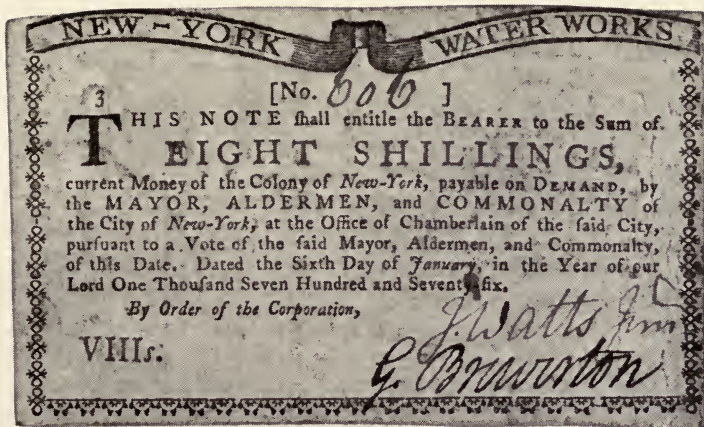 NEW-YORK WATER WORKS
[No. 606 ]
3
THIS NOTE ſhall entitle the BEARER to the Sum of
EIGHT SHILLINGS,
current Money of the Colony of New-York, payable on DEMAND, by
the MAYOR, ALDERMEN, and COMMONALTY of
the City of New-York, at the Office of Chamberlain of the ſaid City,
purſuant to a Vote of the ſaid Mayor, Aldermen, and Commonalty,
of this Date. Dated the Sixth Day of January, in the Year of our
Lord One Thouſand Seven Hundred and Seventy-ſix.
By Order of the Corporation,
J Watts Jun
VIIIs.
G. Brewerton